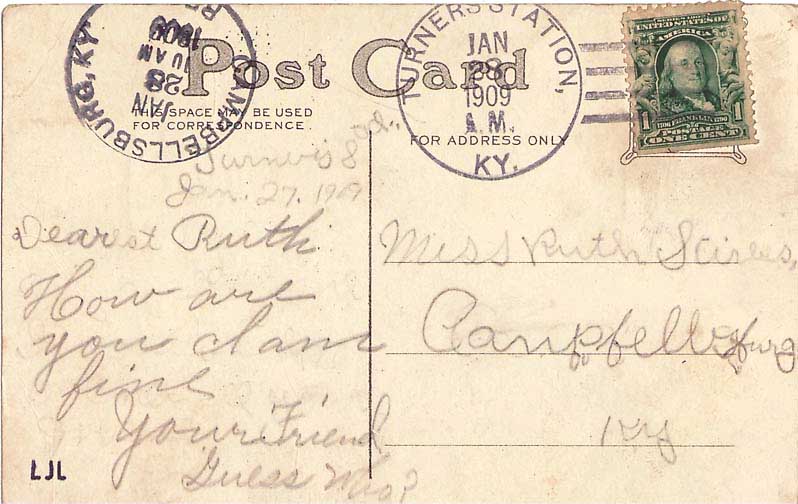 Post Card
THIS SPACE MAY BE USED
FOR CORRESPONDENCE.
FOR ADDRESS ONLY
CAMPBELLSBURG, KY.
JAN
28
10 AM
1909
TURNERS STATION,
JAN
28
1909
A.M.
KY.
SERIES 1902
UNITED STATES OF
AMERICA
1 1
1706 FRANKLIN 1790
POSTAGE
ONE CENT
Turner's
Jan. 27, 1909
Dearest Ruth
How are
you I am
fine
Your Friend
Guess Who?
LJL
Miss Ruth
Campbellsburg
Ky